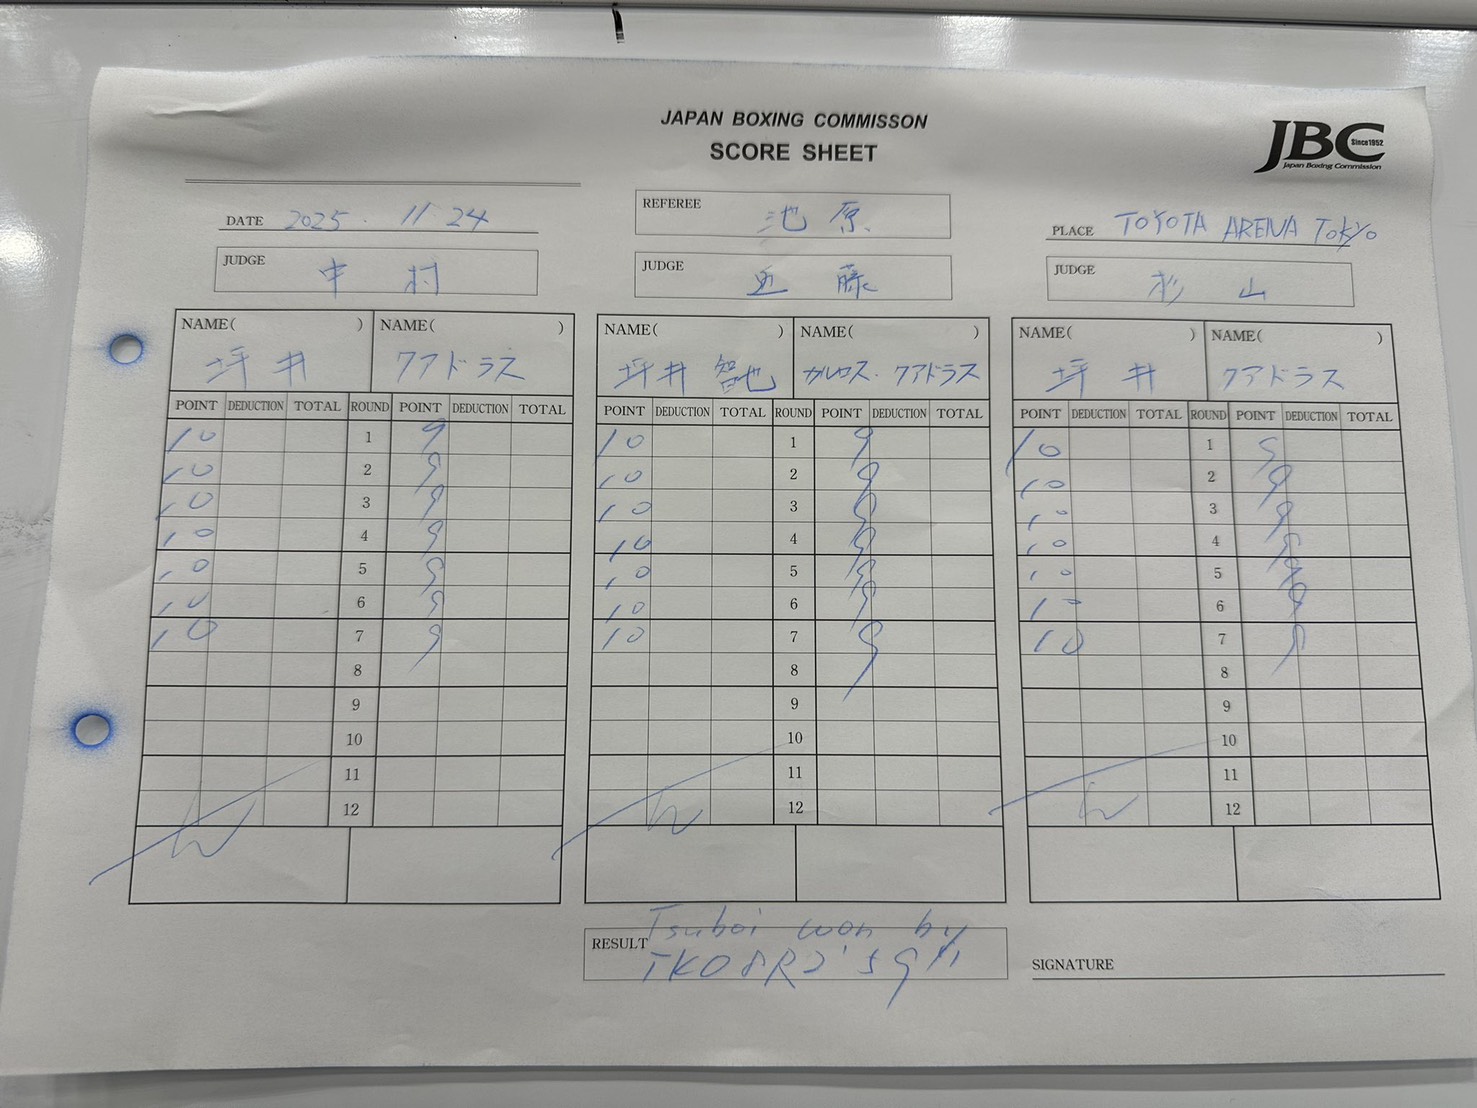 JAPAN BOXING COMMISSON
SCORE SHEET
JBC Since1952
Japan Boxing Commission
DATE 2025. 11. 24
REFEREE 池原
PLACE TOYOTA ARENA TOKYO
JUDGE 中村
JUDGE 近藤
JUDGE 杉山
NAME( ) NAME( ) NAME( ) NAME( ) NAME( ) NAME( )
坪井 クアドラス 坪井 智也 カルロス・クアドラス 坪井 クアドラス
POINT DEDUCTION TOTAL ROUND POINT DEDUCTION TOTAL POINT DEDUCTION TOTAL ROUND POINT DEDUCTION TOTAL POINT DEDUCTION TOTAL ROUND POINT DEDUCTION TOTAL
10 1 9 10 1 9 10 1 9
10 2 9 10 2 9 10 2 9
10 3 9 10 3 9 10 3 9
10 4 9 10 4 9 10 4 9
10 5 9 10 5 9 10 5 9
10 6 9 10 6 9 10 6 9
10 7 9 10 7 9 10 7 9
8 8 8
9 9 9
10 10 10
11 11 11
12 12 12
RESULT Tsuboi won by
TKO 8R 2'59"
SIGNATURE